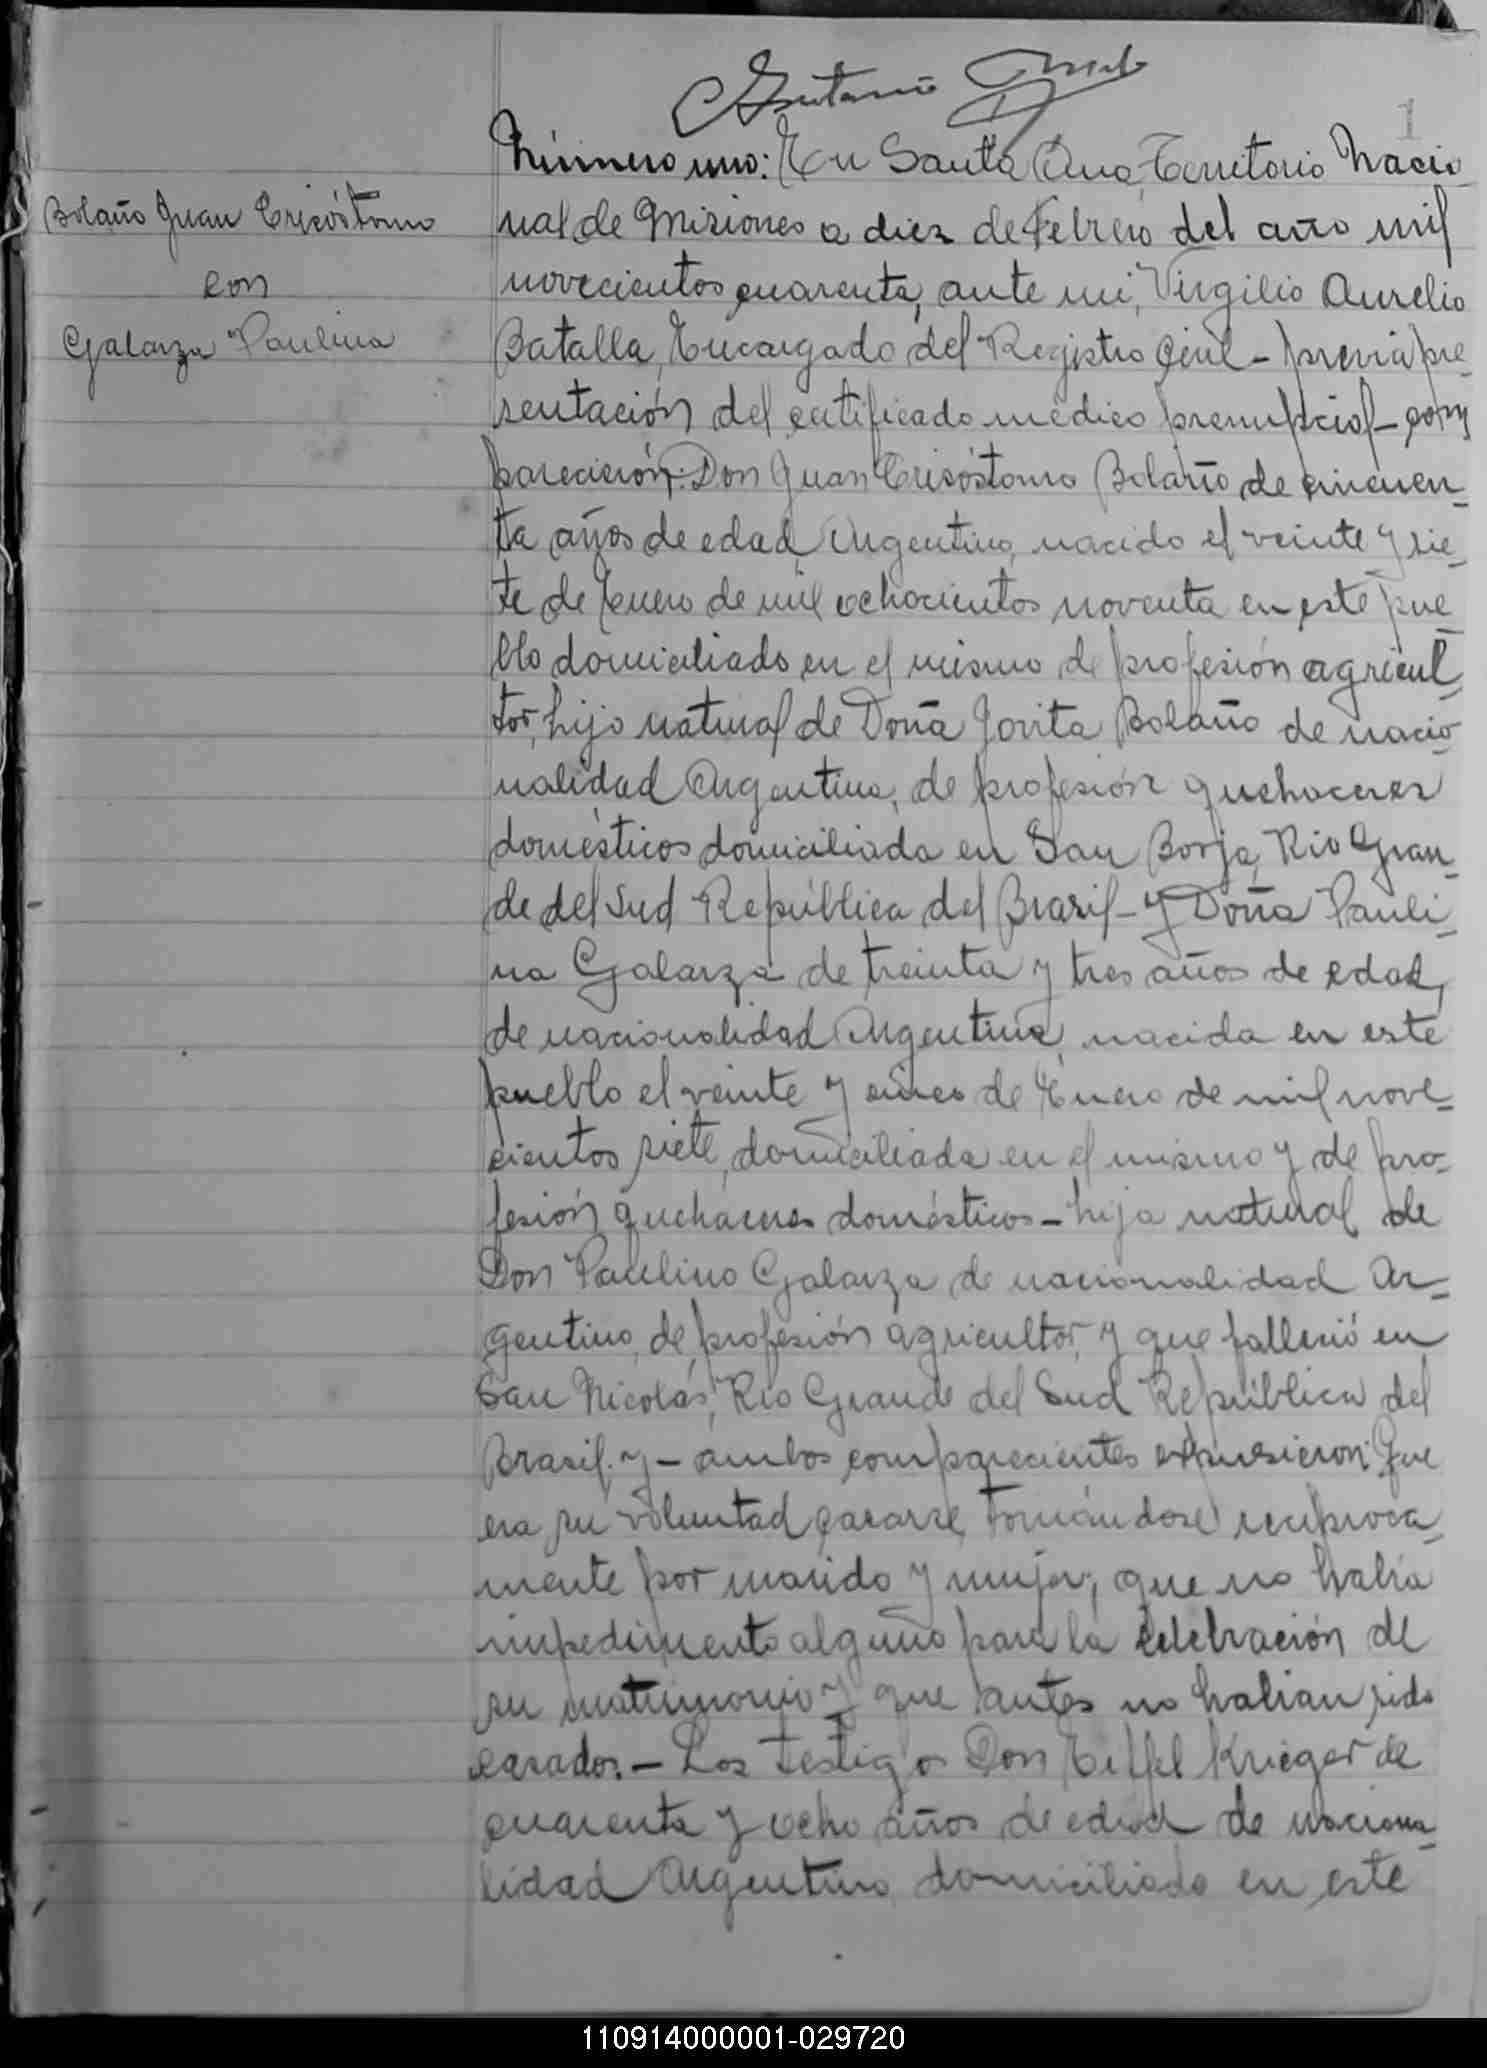 1
Bolaño Juan Cricóstomo
con
Galarza Paulina
Número uno: En Santa Ana Territorio Nacio_
nal de Misiones a diez de Febrero del año mil
novecientos cuarenta, ante mi, Virgilio Aurelio
Batalla, Encargado del Registro Civil - previa pre_
sentación del certificado médico prenupcial - com
parecieron: Don Juan Crisóstomo Bolaño de cincuen_
ta años de edad, Argentino, nacido el veinte y sie_
te de Enero de mil ochocientos noventa en este pue_
blo domiciliado en el mismo de profesión agricul_
tor, hijo natural de Doña Jovita Bolaño de nacio_
nalidad Argentina, de profesión quehaceres
domésticos domiciliada en San Borja, Rio Gran_
de del Sud República del Brasil - y Doña Pauli_
na Galarza de treinta y tres años de edad,
de nacionalidad Argentina, nacida en este
pueblo el veinte y cinco de Enero de mil nove_
cientos siete, domiciliada en el mismo y de pro_
fesión quehaceres domésticos - hija natural de
Don Paulino Galarza de nacionalidad Ar_
gentino, de profesión agricultor, y que falleció en
San Nicolás, Rio Grande del Sud República del
Brasil. y - ambos comparecientes expusieron: Que
era su voluntad casarse, tomándose reciproca_
mente por marido y mujer; que no habia
impedimento alguno para la celebración de
su matrimonio y que antes no habian sido
casados. - Los testigos Don Eiffel Krieger de
cuarenta y ocho años de edad de naciona_
lidad Argentino domiciliado en este
110914000001-029720